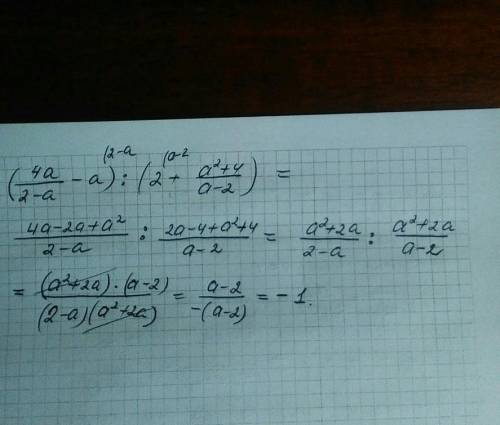 (2-a (a-2
(4a/(2-a) - a) : (2 + (a²+4)/(a-2)) =
(4a-2a+a²)/(2-a) : (2a-4+a²+4)/(a-2) = (a²+2a)/(2-a) : (a²+2a)/(a-2)
= ((a²+2a)·(a-2))/((2-a)(a²+2a)) = (a-2)/(-(a-2)) = -1.